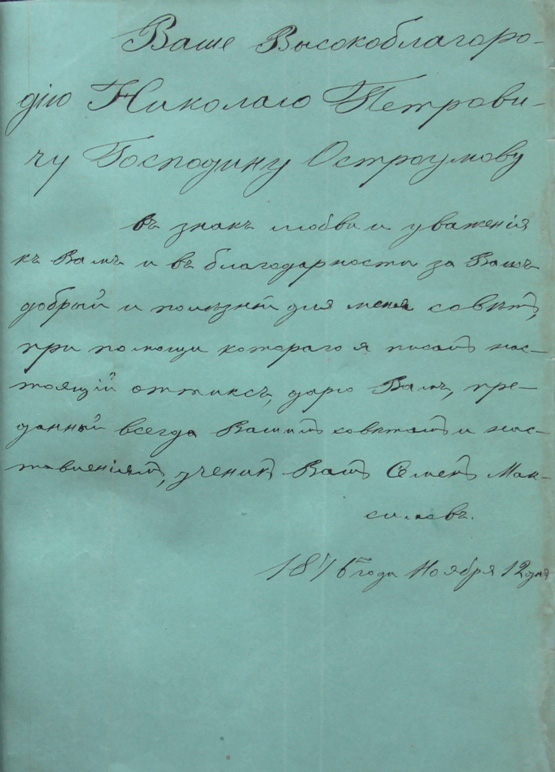 Ваше Высокоблагоро-
дію Николаю Петрови-
чу Господину Остроумову
въ знакъ любви и уваженія
къ Вамъ и въ благодарности за Вашъ
добрый и полезный для меня совѣтъ,
при помощи котораго я писалъ нас-
тоящій оттискъ, дарю Вамъ, пре-
данный всегда Вашимъ совѣтамъ и нас-
тавленіямъ, ученикъ Вашъ Семенъ Мак-
симовъ.
1876 года Ноября 12 дня